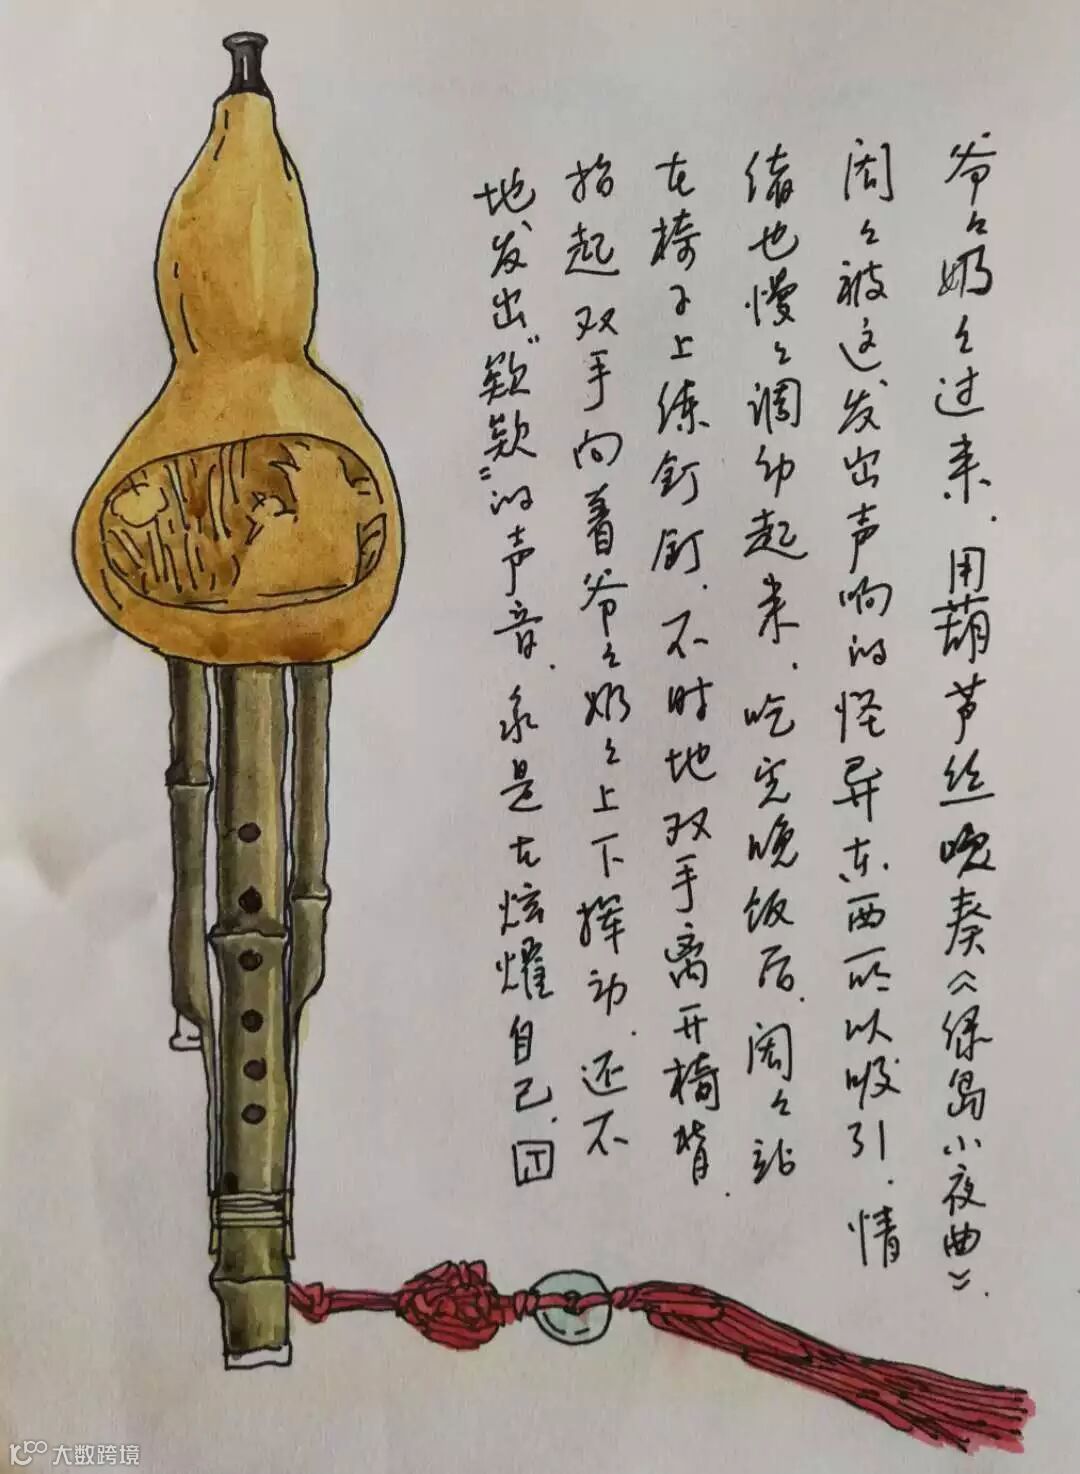 爷々奶々过来.用葫芦丝吹奏《绿岛小夜曲》.
闳々被这发出声响的怪异东西所以吸引.情
绪也慢々调动起来.吃完晚饭后.闳々站
在椅子上练钉钉.不时地双手离开椅背.
抬起双手向着爷々奶々上下挥动.还不
地发出"欻欻"的声音.永是在炫耀自己.
大数跨境